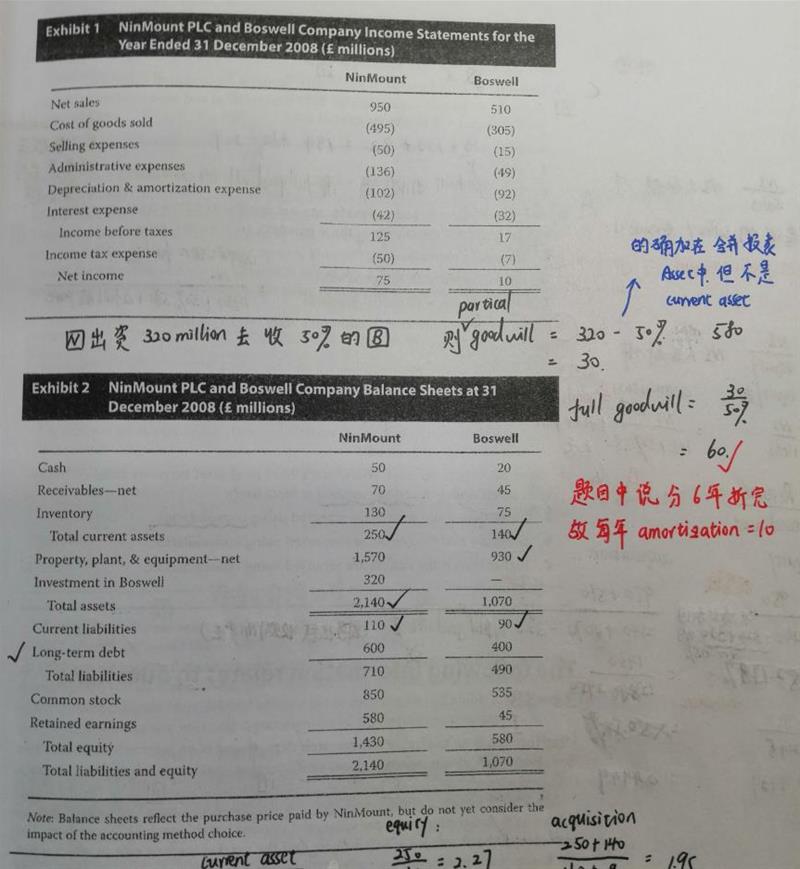 Exhibit 1 NinMount PLC and Boswell Company Income Statements for the
Year Ended 31 December 2008 (£ millions)
NinMount Boswell
Net sales 950 510
Cost of goods sold (495) (305)
Selling expenses (50) (15)
Administrative expenses (136) (49)
Depreciation & amortization expense (102) (92)
Interest expense (42) (32)
Income before taxes 125 17
Income tax expense (50) (7)
Net income 75 10
的确加在 合并报表
Asset中, 但不是
current asset
partical
N出资 320 million 去 收 50% 的 B 则 goodwill = 320 - 50% 580
= 30.
Exhibit 2 NinMount PLC and Boswell Company Balance Sheets at 31
December 2008 (£ millions)
full goodwill = 30
50%
= 60.
题目中说 分 6年 折完
故 每年 amortization = 10
NinMount Boswell
Cash 50 20
Receivables—net 70 45
Inventory 130 75
Total current assets 250 140
Property, plant, & equipment—net 1,570 930
Investment in Boswell 320 —
Total assets 2,140 1,070
Current liabilities 110 90
Long-term debt 600 400
Total liabilities 710 490
Common stock 850 535
Retained earnings 580 45
Total equity 1,430 580
Total liabilities and equity 2,140 1,070
Note: Balance sheets reflect the purchase price paid by NinMount, but do not yet consider the
impact of the accounting method choice.
equity: acquisition
current asset 250 = 2.27 250+140 = 1.95